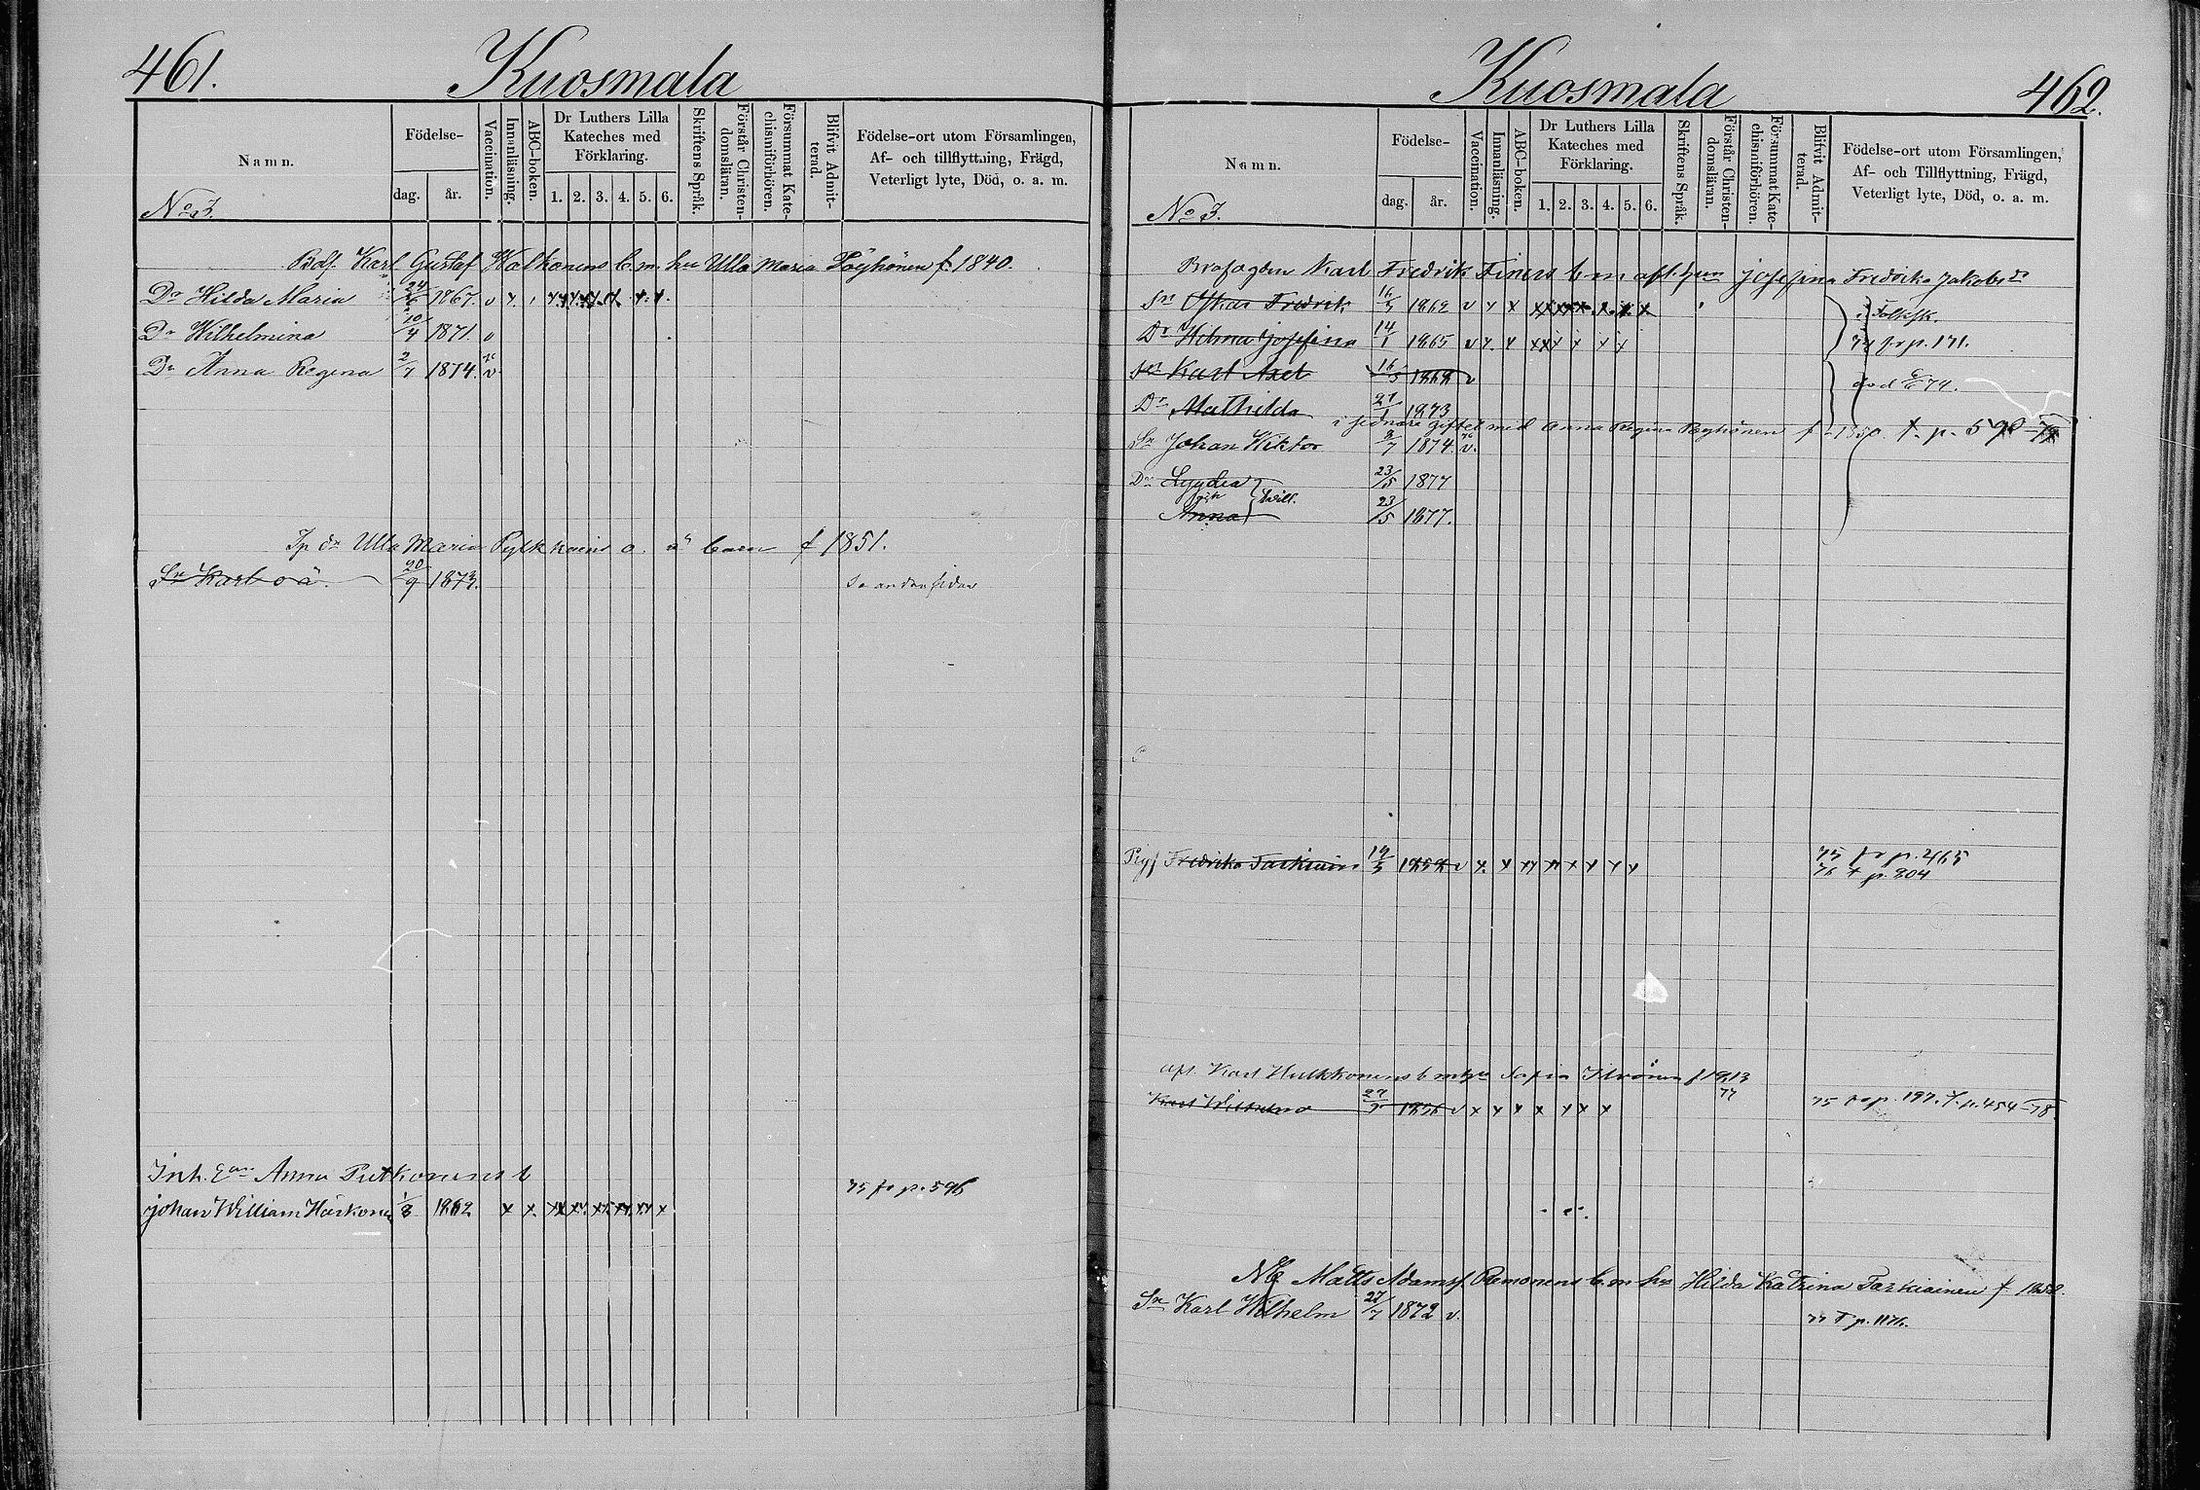 461.
Kuosmala
Namn.
Födelse-
dag.
år.
Vaccination.
Innanläsning.
ABC-boken.
Dr Luthers Lilla
Kateches med
Förklaring.
1. 2. 3. 4. 5. 6.
Skriftens Språk.
Förstår Christen-
domsläran.
Försummat Kate-
chismiförhören.
Blifvit Admit-
terad.
Födelse-ort utom Församlingen,
Af- och tillflyttning, Frägd,
Veterligt lyte, Död, o. a. m.
No 3.
Karl Gustaf b. m. hu Ulla Maria Pöyhönen f. 1840.
Dr Hilda Maria 24/6 1867. v x
Dr Wilhelmina 10/4 1871. v
Dr Anna Regina 2/7 1874. v
Ulla Maria o. ä barn f 1851.
Sn Karl o ä. 20/9 1873.
Anna Putkonens b
Johan William 1/8 1862 x x 75 fr p. 596
Kuosmala
462.
Namn.
Födelse-
dag.
år.
Vaccination.
Innanläsning.
ABC-boken.
Dr Luthers Lilla
Kateches med
Förklaring.
1. 2. 3. 4. 5. 6.
Skriftens Språk.
Förstår Christen-
domsläran.
Försummat Kate-
chismiförhören.
Blifvit Admit-
terad.
Födelse-ort utom Församlingen,
Af- och Tillflyttning, Frägd,
Veterligt lyte, Död, o. a. m.
No 3.
Karl Fredrik b m Josefina Fredrika Jakobsdr
Sn Oskar Fredrik 16/5 1862 v x x i Folksk.
Dr Hilma Josefina 14/1 1865 v x x 74 fr p. 171.
Sn Karl Axel 16/5 1868 v död 74.
Dr Mathilda 27/1 1873
i sednare giftet med Anna Regina Pöyhönen f 1850. t. p. 590
Sn Johan Wiktor 3/7 1874. v.
Dr Lyydia 23/5 1877
och tvill.
Anna 23/5 1877.
Pig Fredrika Tarkiain 19/5 v x x 75 fr p. 465
76 t p. 304
Karl Hulkkonens b m Sofia f 1813
77
Karl Wilhelm 27/9 v x x x 75 fr p. 197. t. p. 454-78
Matts Adamsf. b. m. hu Hilda Katrina Tarkiainen f
Sn Karl Wilhelm 27/7 1872 v. 77 t p. 1176.